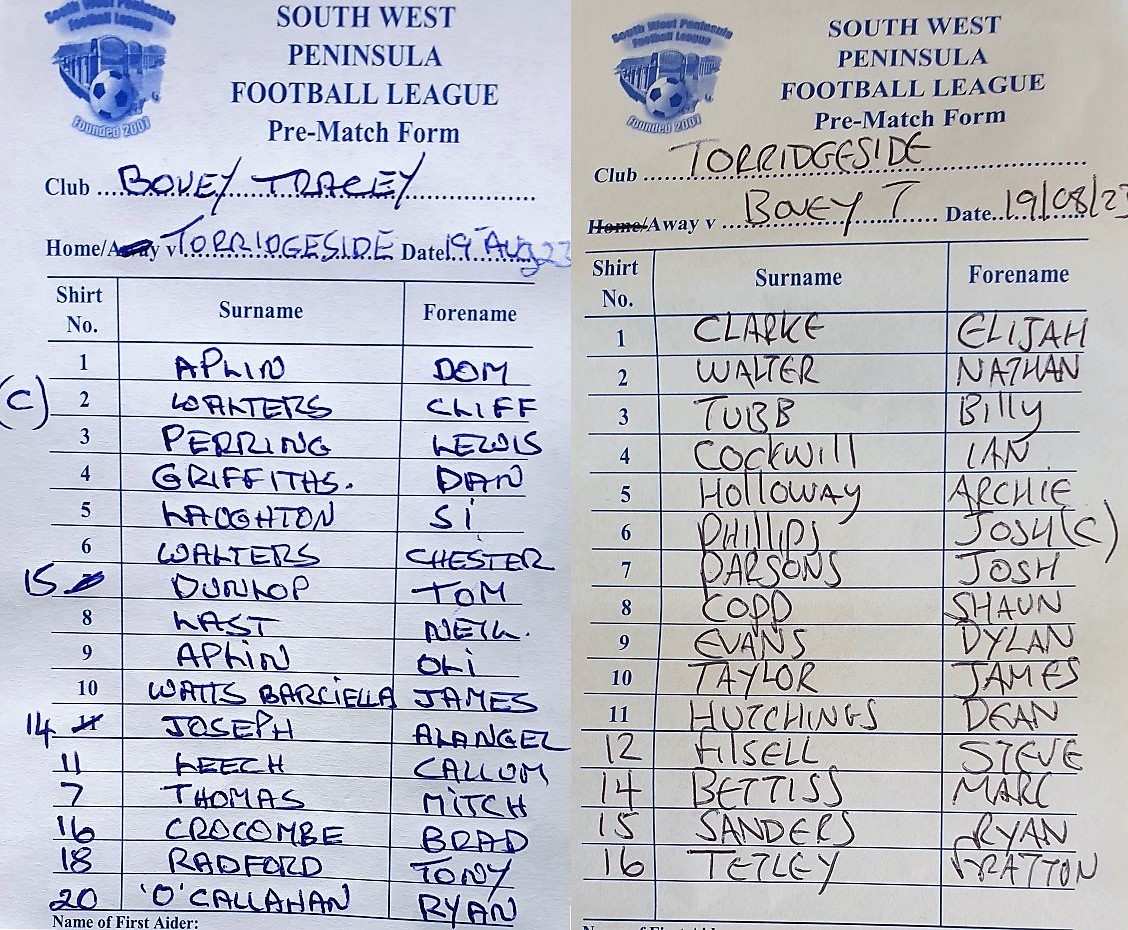 South West Peninsula
Football League
Founded 2007
SOUTH WEST
PENINSULA
FOOTBALL LEAGUE
Pre-Match Form
Club BOVEY TRACEY
Home/Away v TORRIDGESIDE Date 19 AUG 23
Shirt No. Surname Forename
1 APLIN DOM
(C) 2 WALTERS CLIFF
3 PERRING LEWIS
4 GRIFFITHS. DAN
5 LAUGHTON SI
6 WALTERS CHESTER
15 DUNLOP TOM
8 LAST NEIL.
9 APLIN OLI
10 WATTS BARCIELLA JAMES
14 11 JOSEPH ALANGEL
11 LEECH CALLUM
7 THOMAS MITCH
16 CROCOMBE BRAD
18 RADFORD TONY
20 'O'CALLAHAN RYAN
Name of First Aider:
South West Peninsula
Football League
Founded 2007
SOUTH WEST
PENINSULA
FOOTBALL LEAGUE
Pre-Match Form
Club TORRIDGESIDE
Home/Away v BOVEY T Date 19/08/23
Shirt No. Surname Forename
1 CLARKE ELIJAH
2 WALTER NATHAN
3 TUBB Billy
4 COCKWill IAN
5 HOllOWAY ARCHIE
6 PHILLIPS JOSH (C)
7 PARSONS JOSH
8 COPP SHAUN
9 EVANS DYLAN
10 TAYLOR JAMES
11 HUTCHINGS DEAN
12 HISELL STEVE
14 BETTISS MARC
15 SANDERS RYAN
16 TETLEY BRATTON